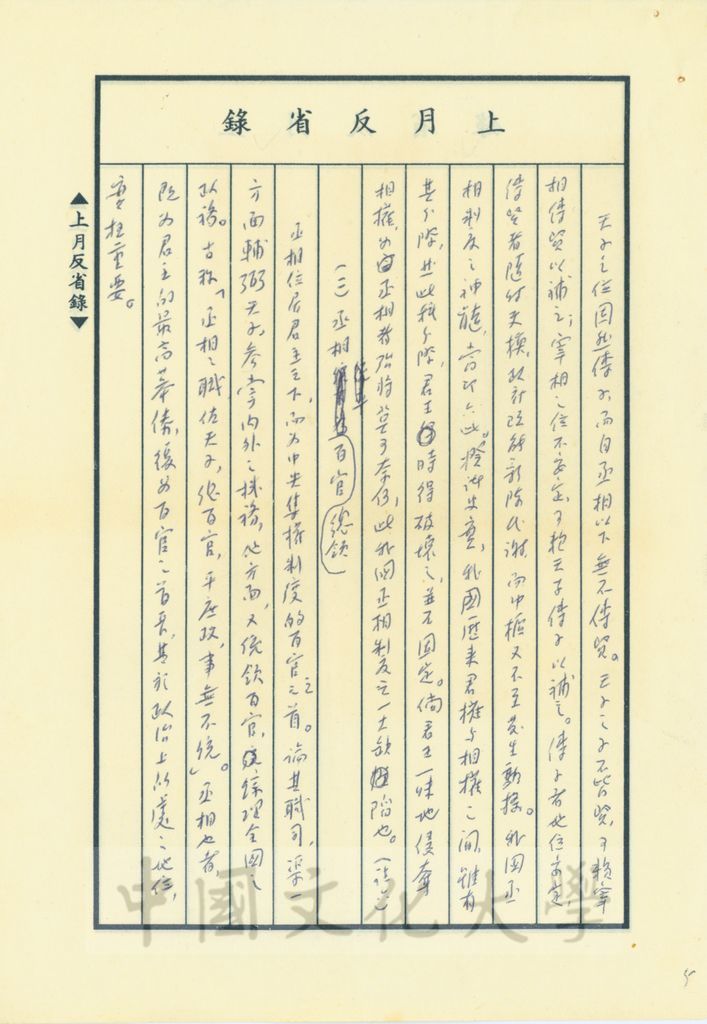 上月反省錄
天子之位固然傳子,而自丞相以下無不傳賢。天子之子不皆賢,可賴宰
相傳賢以補之;宰相之位不安定,可賴天子傳子以補之。傳子者地位安定,
傳賢者隨時更換,政府既能新陳代謝,而中樞又不至發生動搖。我國丞
相制度之神髓,當即在此。證諸史實,我國歷來君權與相權之間,雖有
其分際,然此種分際,君王時得破壞之,並不固定。倘君王一味地侵奪
相權,為丞相者殆將莫可奈何,此我國丞相制度之一大缺陷也。(註)
(三)丞相總領百官
丞相位居君主之下,而為中央集權制度的百官之首。論其職司,渠一
方面輔弼天子,參掌內外之機務,他方面,又統領百官,綜理全國之
政務。古稱「丞相之職佐天子,總百官,平庶政,事無不統。」丞相也者,
既為君主的最高幕僚,復為百官之首長,其於政治上所處之地位,
實極重要。
▲上月反省錄▼
中國文化大學
5